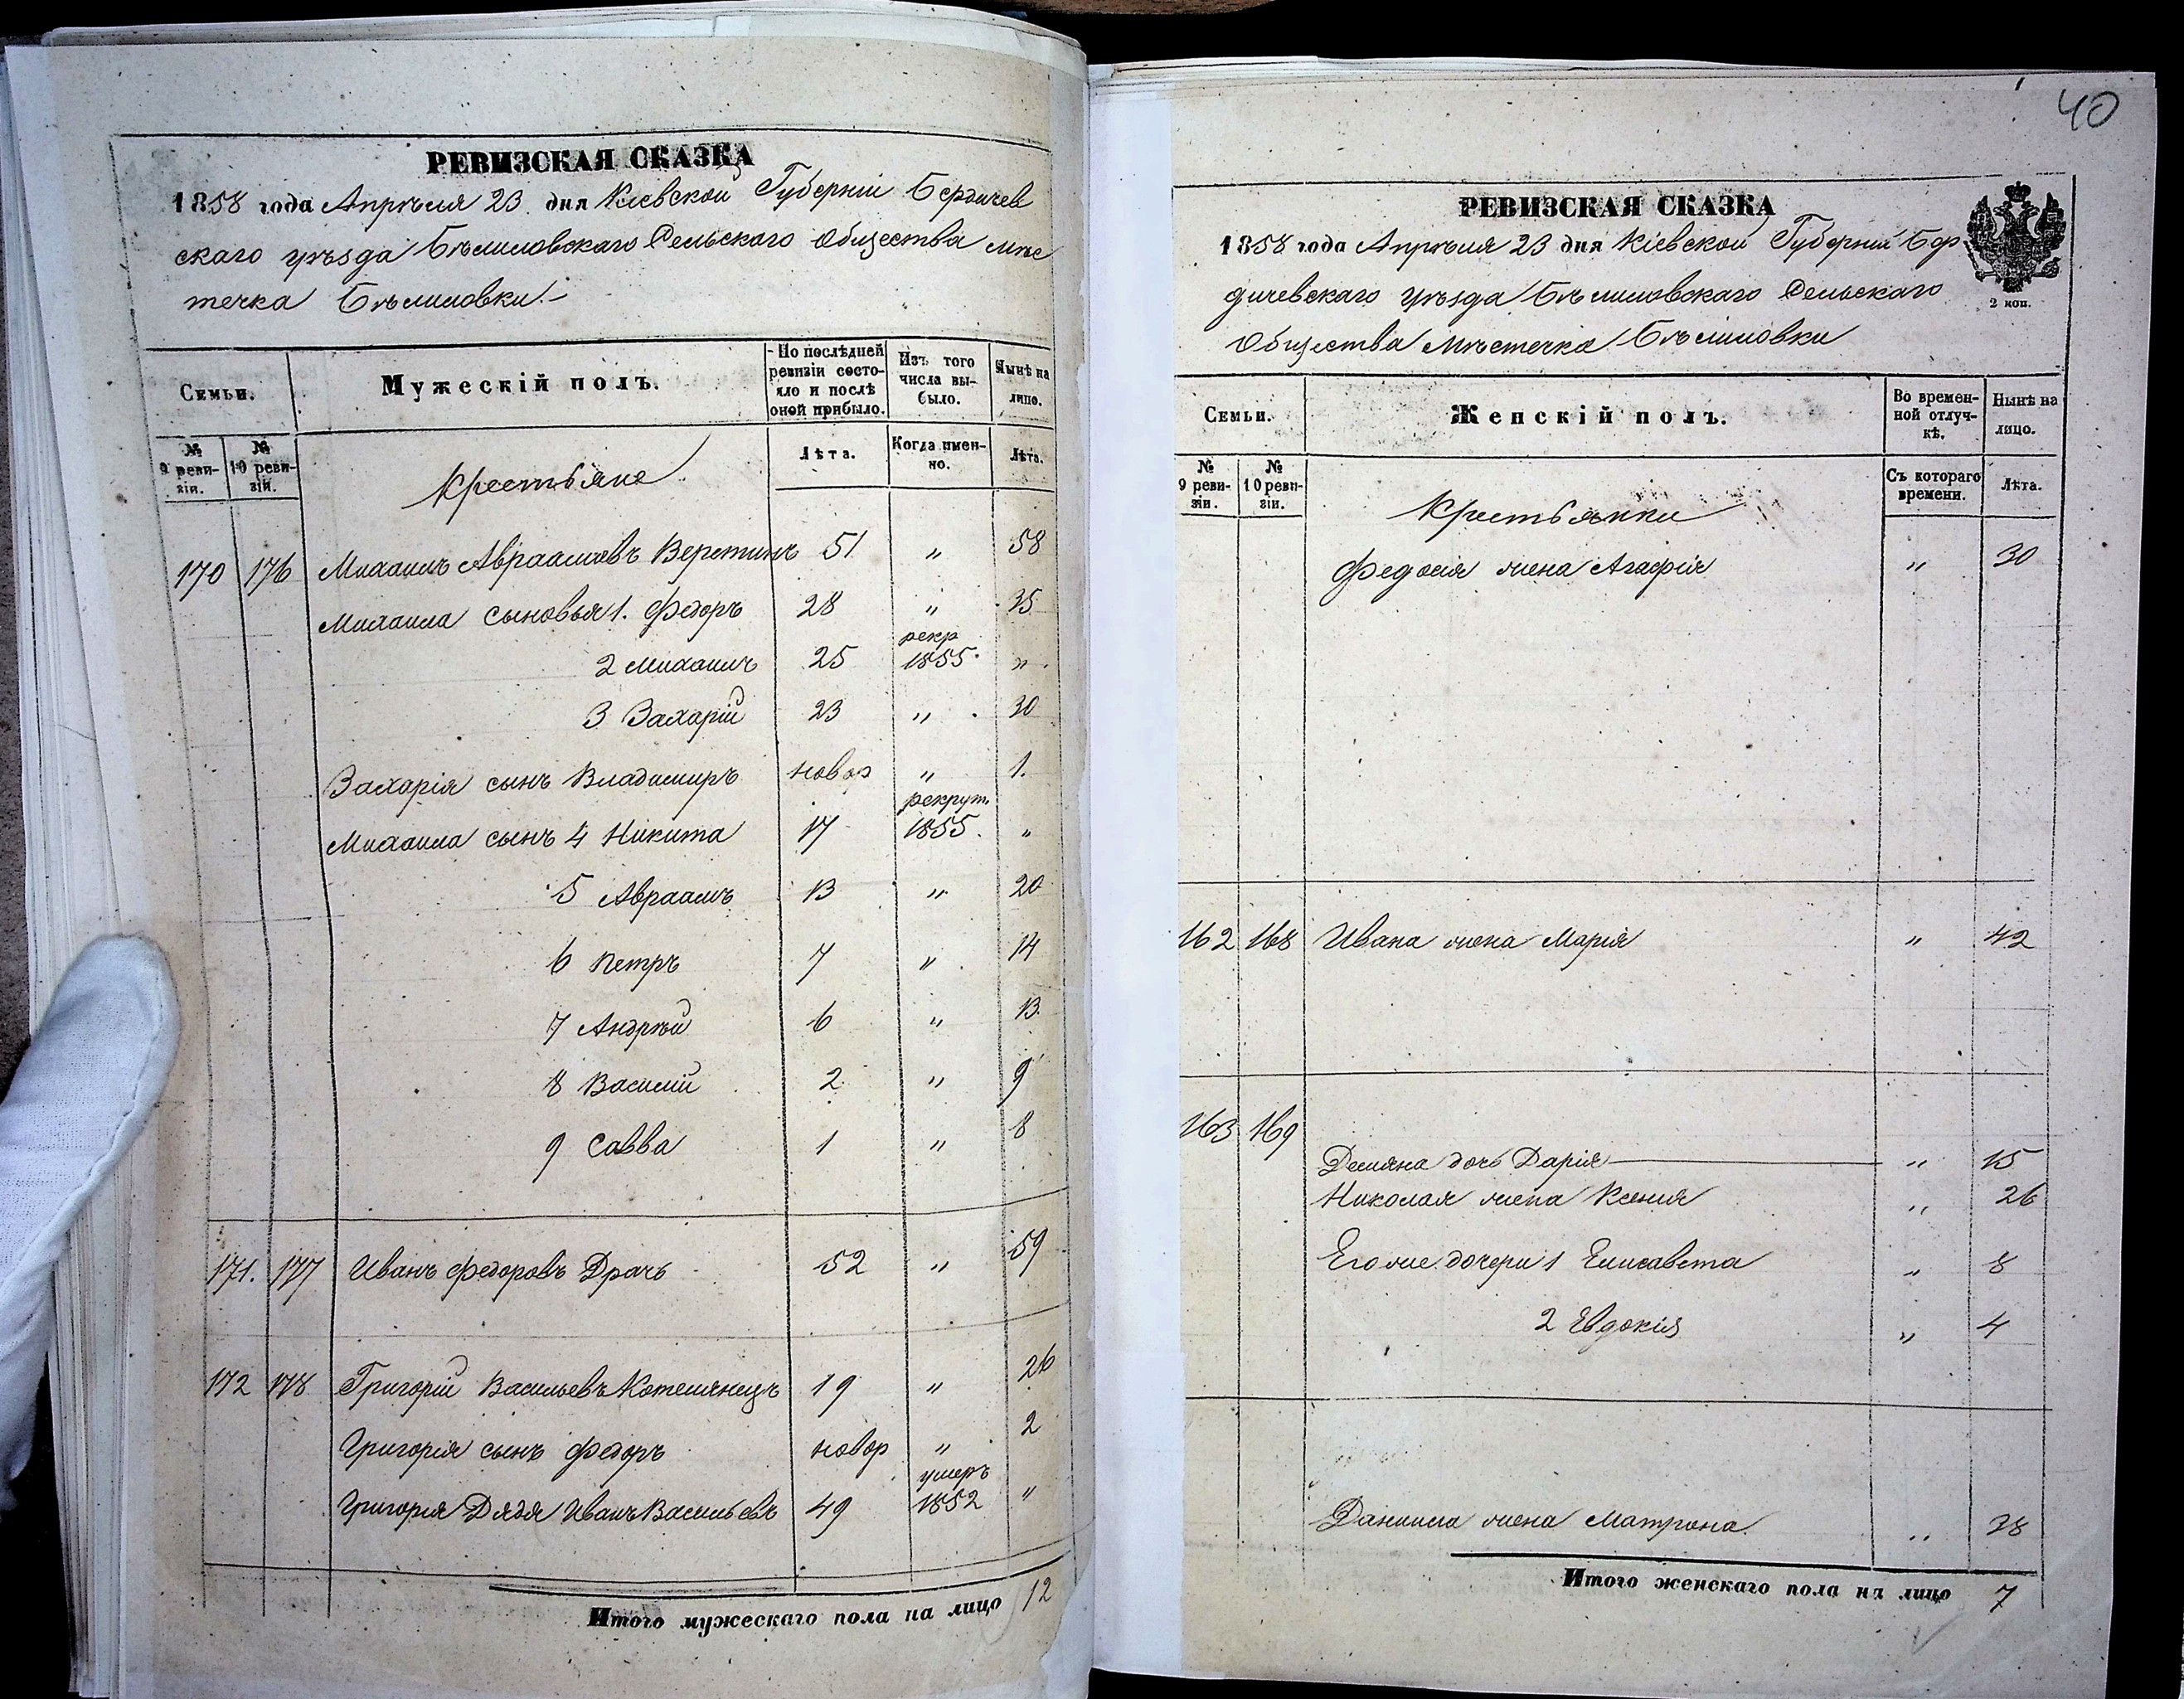 РЕВИЗСКАЯ СКАЗКА
1858 года Апрѣля 23 дня Кіевской Губерніи Бердичев
скаго уѣзда Бѣлиловскаго Сельскаго Общества мѣс
течка Бѣлиловки.
Семьи.
Мужескій полъ.
По послѣдней ревизіи состояло и послѣ оной прибыло.
Изъ того числа выбыло.
Нынѣ на лицо.
№ 9 ревизіи.
№ 10 ревизіи.
Крестьяне
Лѣта.
Когда именно.
Лѣта.
170 176 Михаилъ Авраамовъ 51 " 58
Михаила сыновья 1. Федоръ 28 " 35
2 Михаилъ 25 рекр 1855 "
3 Захарій 23 " 30
Захарія сынъ Владимиръ новор " 1.
Михаила сынъ 4 Никита 17 рекрут. 1855. "
5 Авраамъ 13 " 20
6 Петръ 7 " 14
7 Андрѣй 6 " 13
8 Василій 2 " 9
9 Савва 1 " 8
171. 177 Иванъ Федоровъ Драчь 52 " 59
172 178 Григорій Васильевъ Котелянецъ 19 " 26
Григорія сынъ Федоръ новор " 2
Григорія Дядя Иванъ Васильевъ 49 умеръ 1852 "
Итого мужескаго пола на лицо 12
40
РЕВИЗСКАЯ СКАЗКА
1858 года Апрѣля 23 дня Кіевской Губерніи Бер
дичевскаго уѣзда Бѣлиловскаго Сельскаго
Общества мѣстечка Бѣлиловки
2 коп.
Семьи.
Женскій полъ.
Во временной отлучкѣ.
Нынѣ на лицо.
№ 9 ревизіи.
№ 10 ревизіи.
Крестьянки
Съ котораго времени.
Лѣта.
Федосія жена Агафія " 30
162 168 Ивана жена Марія " 42
163 169
Демяна дочь Дарія " 15
Николая жена Ксенія " 26
Его же дочери 1 Елисавета " 8
2 Евдокія " 4
Даниила жена Матрона " 28
Итого женскаго пола на лицо 7